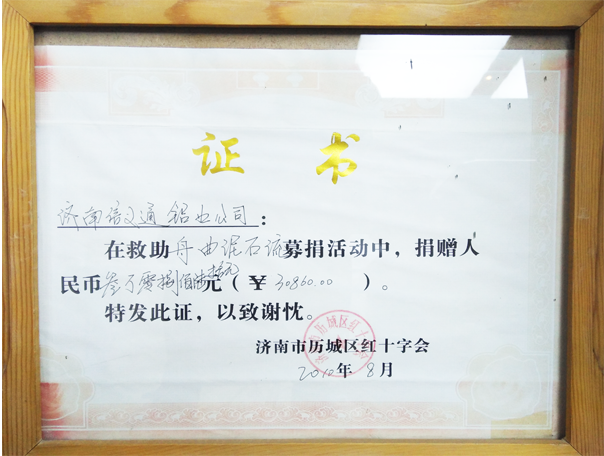 证 书
济南信义通铝业公司：
在救助舟曲泥石流募捐活动中，捐赠人
民币叁万零捌佰陆拾元元（￥30860.00）。
特发此证，以致谢忱。
济南市历城区红十字会
2010年8月